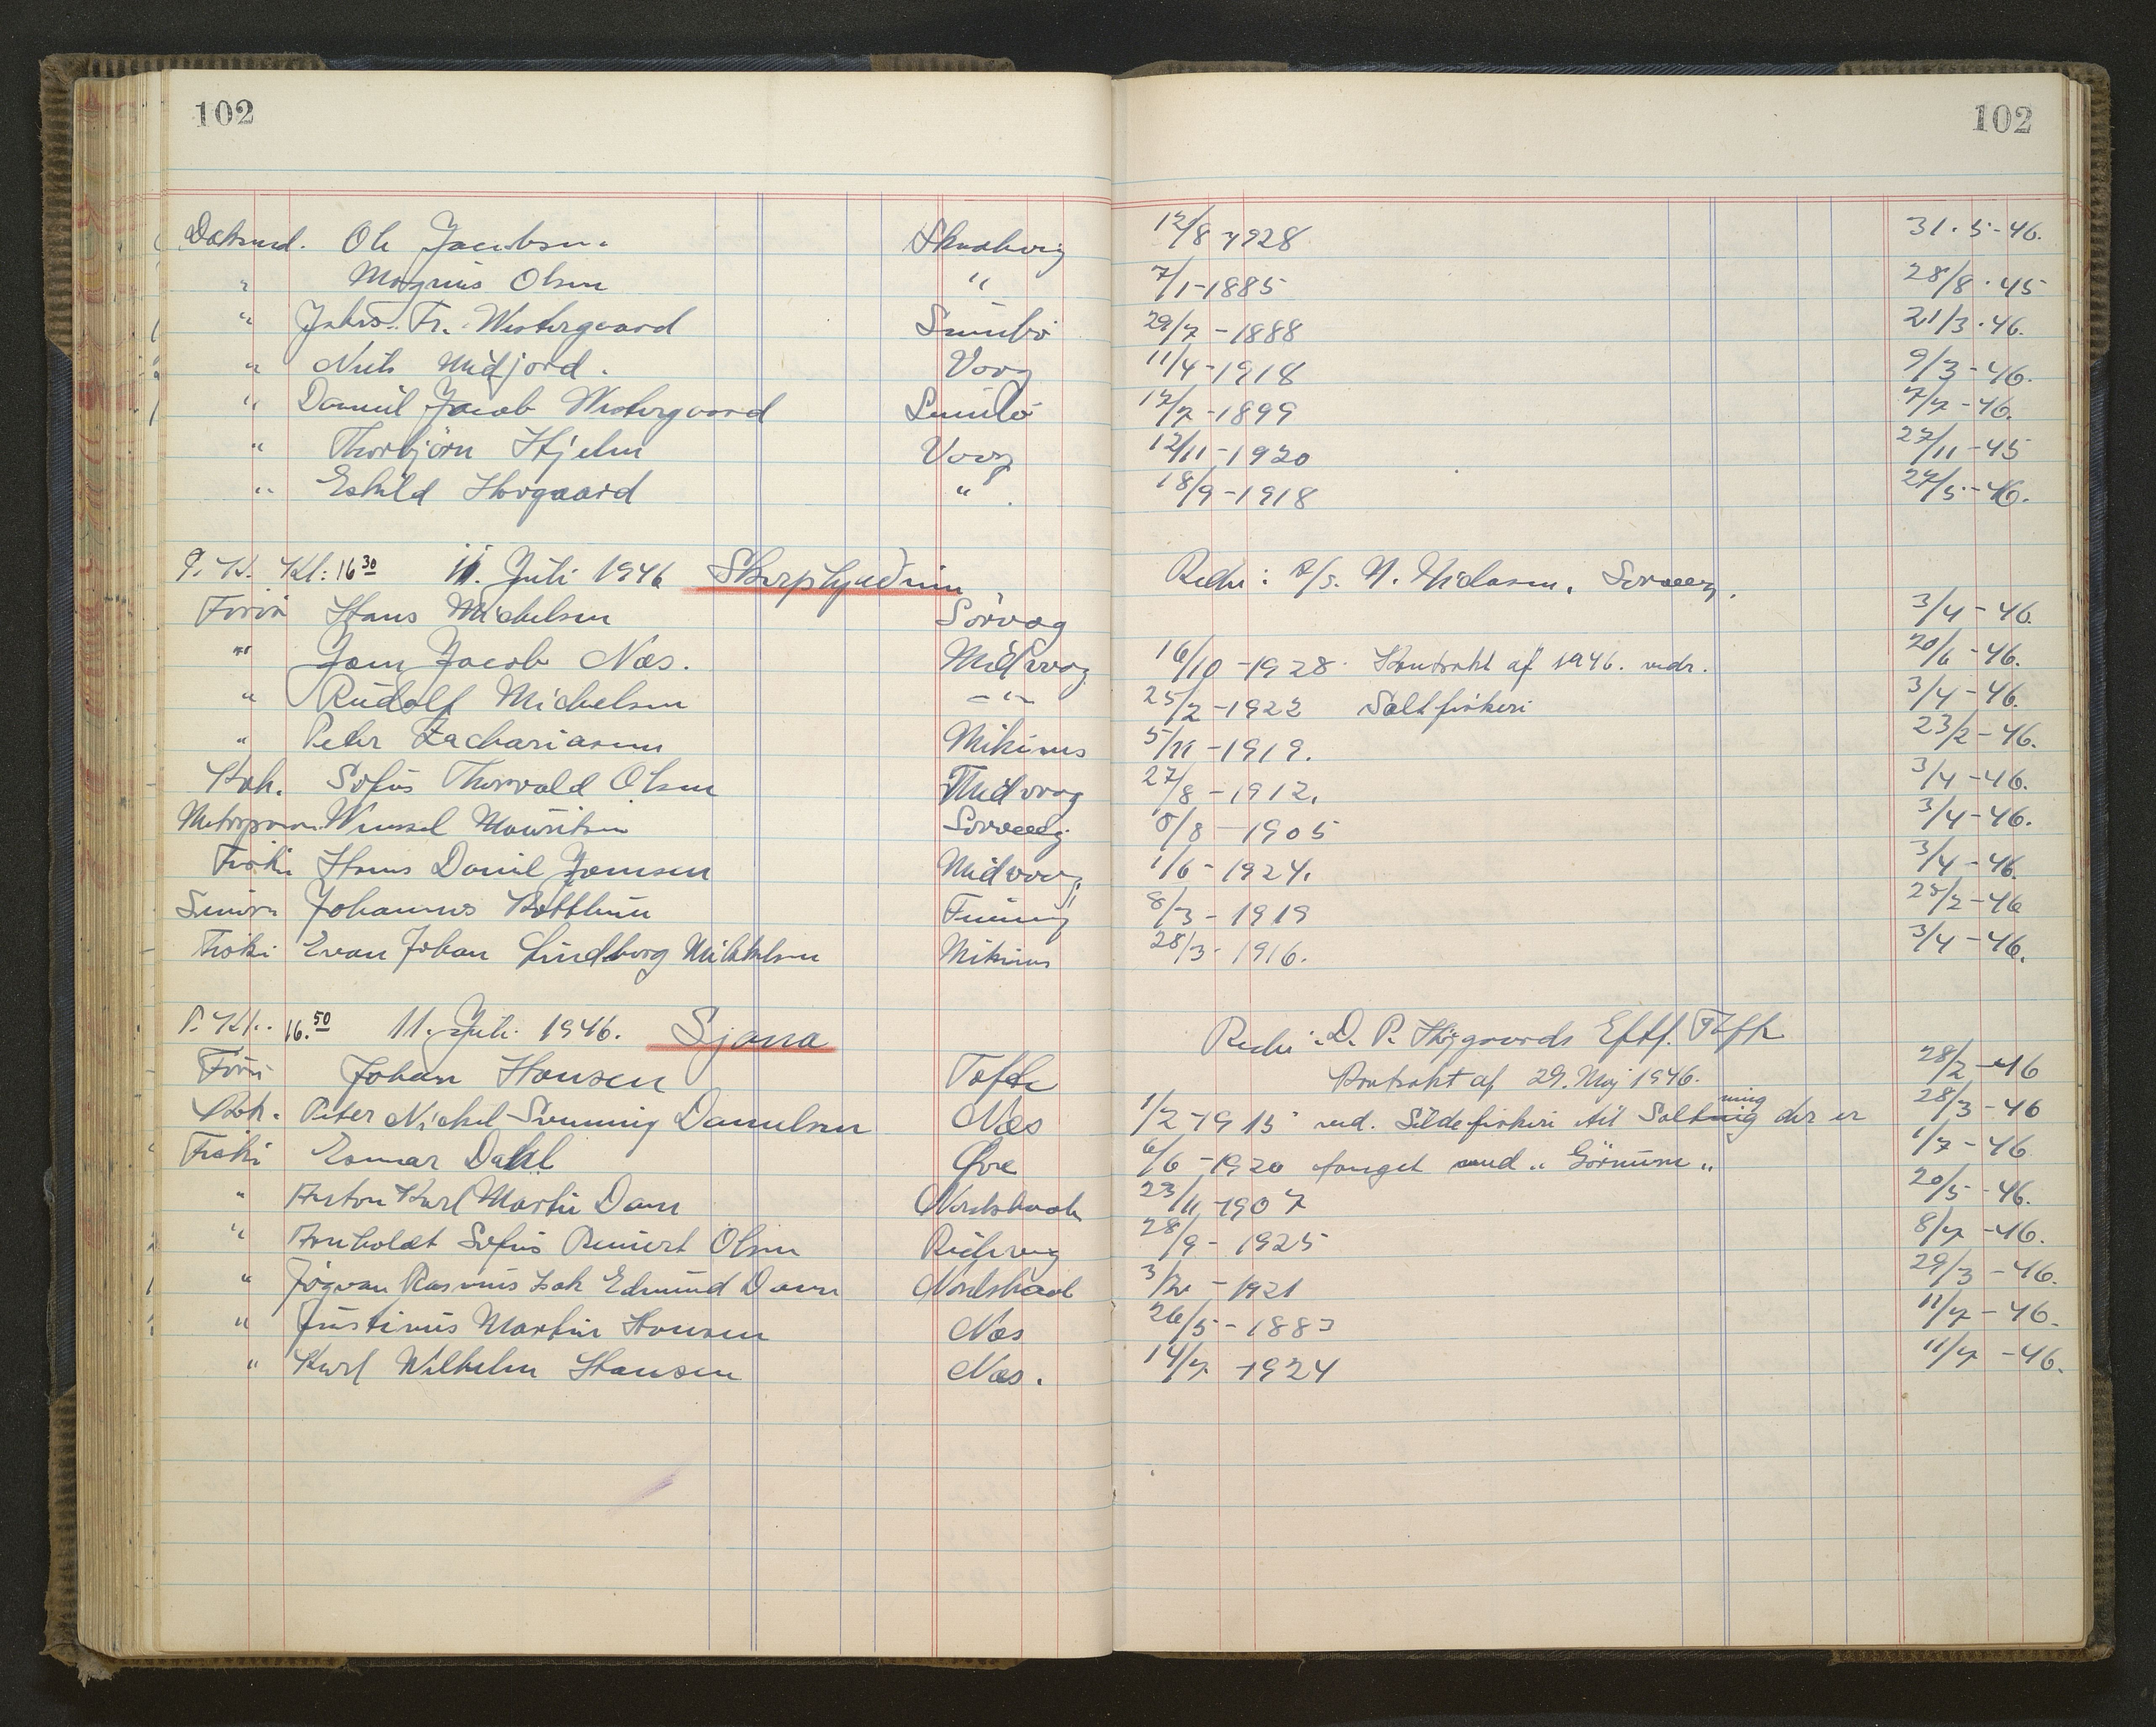 102 102
Dæksmd. Ole Jacobsen. Skaalevig 12/8-1928 31.5-46.
" Magnus Olsen " 7/1-1885 28/8.45
" Johs. Fr. Westergaard Sumbø 29/7-1888 21/3.46.
" Niels Midjord. Vaag 11/4-1918 9/3-46.
" Daniel Jacob Westergaard Sumbø 17/7-1899 7/7-46.
" Thorbjørn Hjelm Vaag 12/11-1920 27/11-45
" Eskild Horgaard " 18/9-1918 27/5-46.
Kl: 16 30 11. Juli 1946 Skarphjedinn Reder: N. Nielasen, Sørvaag.
Fører Hans Michelsen Sørvag 3/4-46.
" Jacob Næs. Midvaag 16/10-1928 Kontrakt af 1946. vedr. 20/6-46.
" Rudolf Michelsen -"- 25/2-1922 Saltfiskeri 3/4-46.
" Peter Zachariasen Mikines 5/11-1919. 23/2-46.
Kok. Sofus Thorvald Olsen Midvaag 27/8-1912. 3/4-46.
Motorpasser Mouritsen Sørvaag 8/8-1905 3/4-46.
Fisker Hans Daniel Joensen Midvaag 1/6-1924. 3/4-46.
Johannes Funing 8/3-1919 25/2-46
Fisker Evan Johan Lindborg Mikkelsen Mikines 28/3-1916. 3/4-46.
Kl. 16.50 11. Juli 1946. Sjana Reder: D. P. Højgaards Eftf. Tofte
Fører Johan Hansen Tofte Kontrakt af 29. Maj 1946. 28/2-46
Kok. Peter Nickel Svenning Danielsen Næs 1/2-1915 ved. Sildefiskeri til Saltning der er 28/3-46
Fisker Dahl Øre 6/6-1920 fanget med "Görnum" 1/7-46
" Anton Karl Martin Dam Nordskaale 23/11-1907 20/5-46.
" Arnholdt Sofus Reinert Olsen 28/9-1925 8/7-46.
" Jógvan Rasmus Isak Edmund Dam Nordskaale -1921 29/3-46.
" Justinus Martin Hansen Næs 26/5-1883 11/7-46.
" Karl Wilhelm Hansen Næs. 14/7-1924 11/7-46.